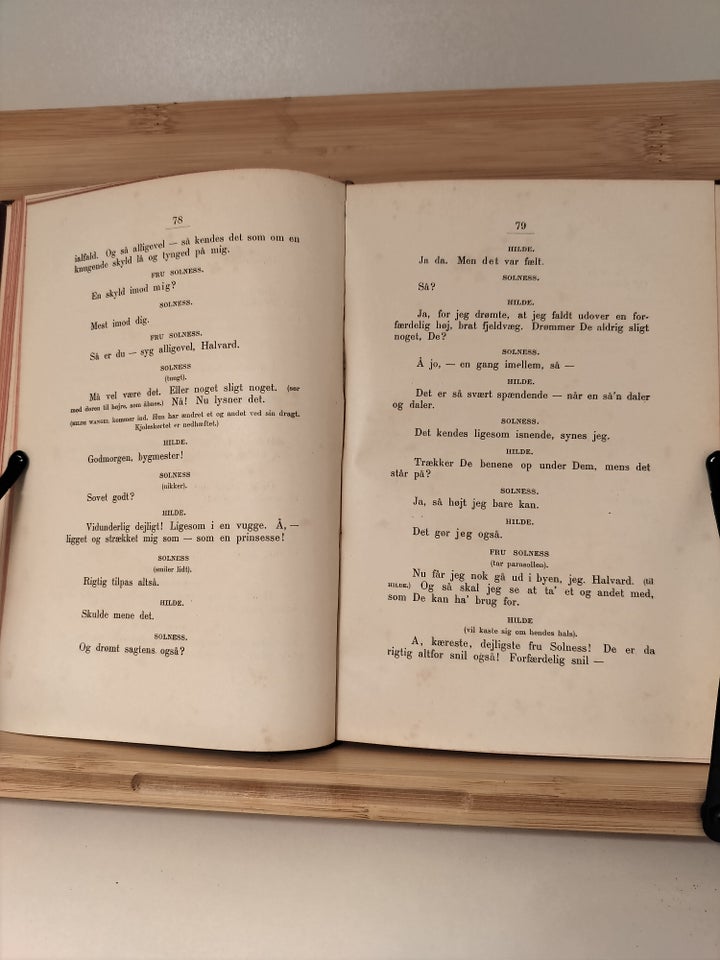 78
ialfald. Og så alligevel — så kendes det som om en
knugende skyld lå og tynged på mig.
FRU SOLNESS.
En skyld imod mig?
SOLNESS.
Mest imod dig.
FRU SOLNESS.
Så er du — syg alligevel, Halvard.
SOLNESS
(tungt).
Må vel være det. Eller noget sligt noget. (ser
mod døren til højre, som åbnes.) Nå! Nu lysner det.
(HILDE WANGEL kommer ind. Hun har ændret et og andet ved sin dragt.
Kjoleskørtet er nedhæftet.)
HILDE.
Godmorgen, bygmester!
SOLNESS
(nikker).
Sovet godt?
HILDE.
Vidunderlig dejligt! Ligesom i en vugge. Å, —
ligget og strækket mig som — som en prinsesse!
SOLNESS
(smiler lidt).
Rigtig tilpas altså.
HILDE.
Skulde mene det.
SOLNESS.
Og drømt sagtens også?
79
HILDE.
Ja da. Men det var fælt.
SOLNESS.
Så?
HILDE.
Ja, for jeg drømte, at jeg faldt udover en for-
færdelig høj, brat fjeldvæg. Drømmer De aldrig sligt
noget, De?
SOLNESS.
Å jo, — en gang imellem, så —
HILDE.
Det er så svært spændende — når en så'n daler
og daler.
SOLNESS.
Det kendes ligesom isnende, synes jeg.
HILDE.
Trækker De benene op under Dem, mens det
står på?
SOLNESS.
Ja, så højt jeg bare kan.
HILDE.
Det gør jeg også.
FRU SOLNESS
(tar parasollen).
Nu får jeg nok gå ud i byen, jeg. Halvard. (til
HILDE.) Og så skal jeg se at ta' et og andet med,
som De kan ha' brug for.
HILDE
(vil kaste sig om hendes hals).
Å, kæreste, dejligste fru Solness! De er da
rigtig altfor snil også! Forfærdelig snil —